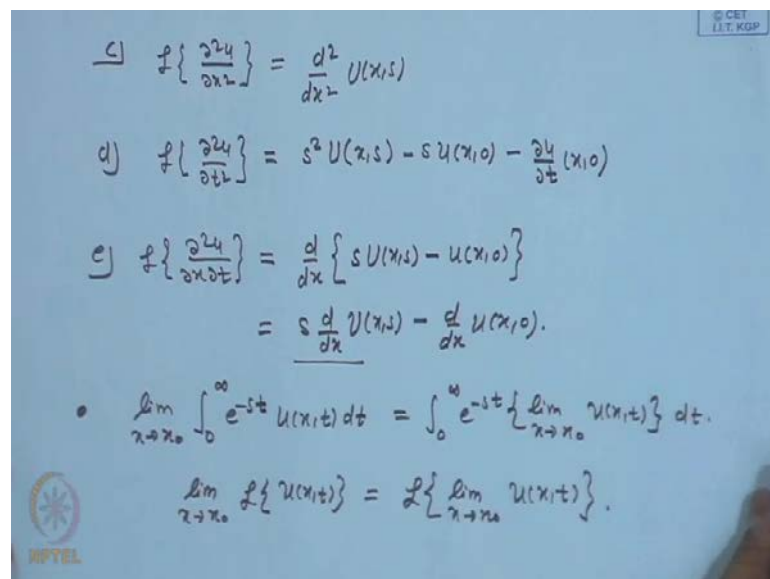 © CET
I.I.T. KGP
c) ℒ{∂²u/∂x²} = d²/dx² U(x,s)
d) ℒ{∂²u/∂t²} = s² U(x,s) - s u(x,0) - ∂u/∂t (x,0)
e) ℒ{∂²u/∂x∂t} = d/dx {s U(x,s) - u(x,0)}
= s d/dx U(x,s) - d/dx u(x,0).
• lim x→x₀ ∫₀^∞ e^{-st} u(x,t) dt = ∫₀^∞ e^{-st} {lim x→x₀ u(x,t)} dt.
lim x→x₀ ℒ{u(x,t)} = ℒ{lim x→x₀ u(x,t)}.
NPTEL